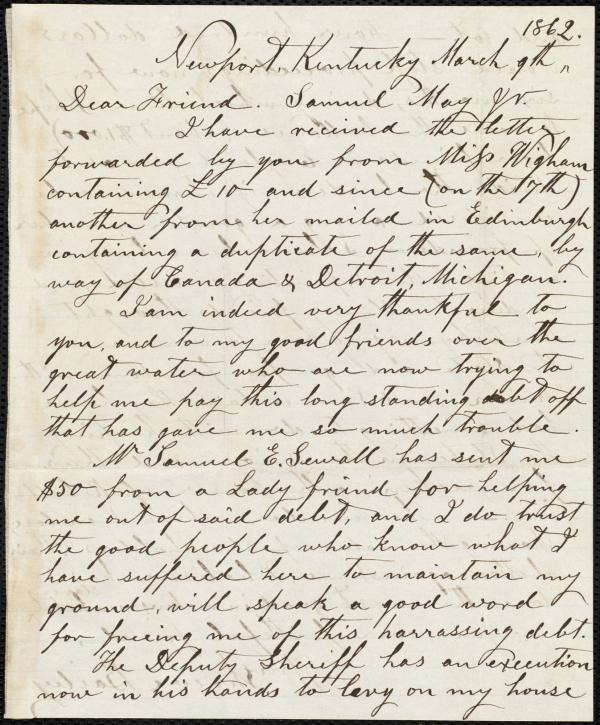 1862.
Newport, Kentucky March 9th,,
Dear Friend. Samuel May Jr.
I have received the letter
forwarded by you from Miss Wigham
containing £10 and since (on the 7th)
another from her mailed in Edinburgh
containing a duplicate of the same, by
way of Canada & Detroit, Michigan.
I am indeed very thankful to
you, and to my good friends over the
great water who are now trying to
help me pay this long standing debt off
that has gave me so much trouble.
Mr Samuel E. Sewall has sent me
$50 from a Lady friend for helping
me out of said debt, and I do trust
the good people who know what I
have suffered here to maintain my
ground, will speak a good word
for freeing me of this harrassing debt.
The Deputy Sheriff has an execution
now in his hands to levy on my house